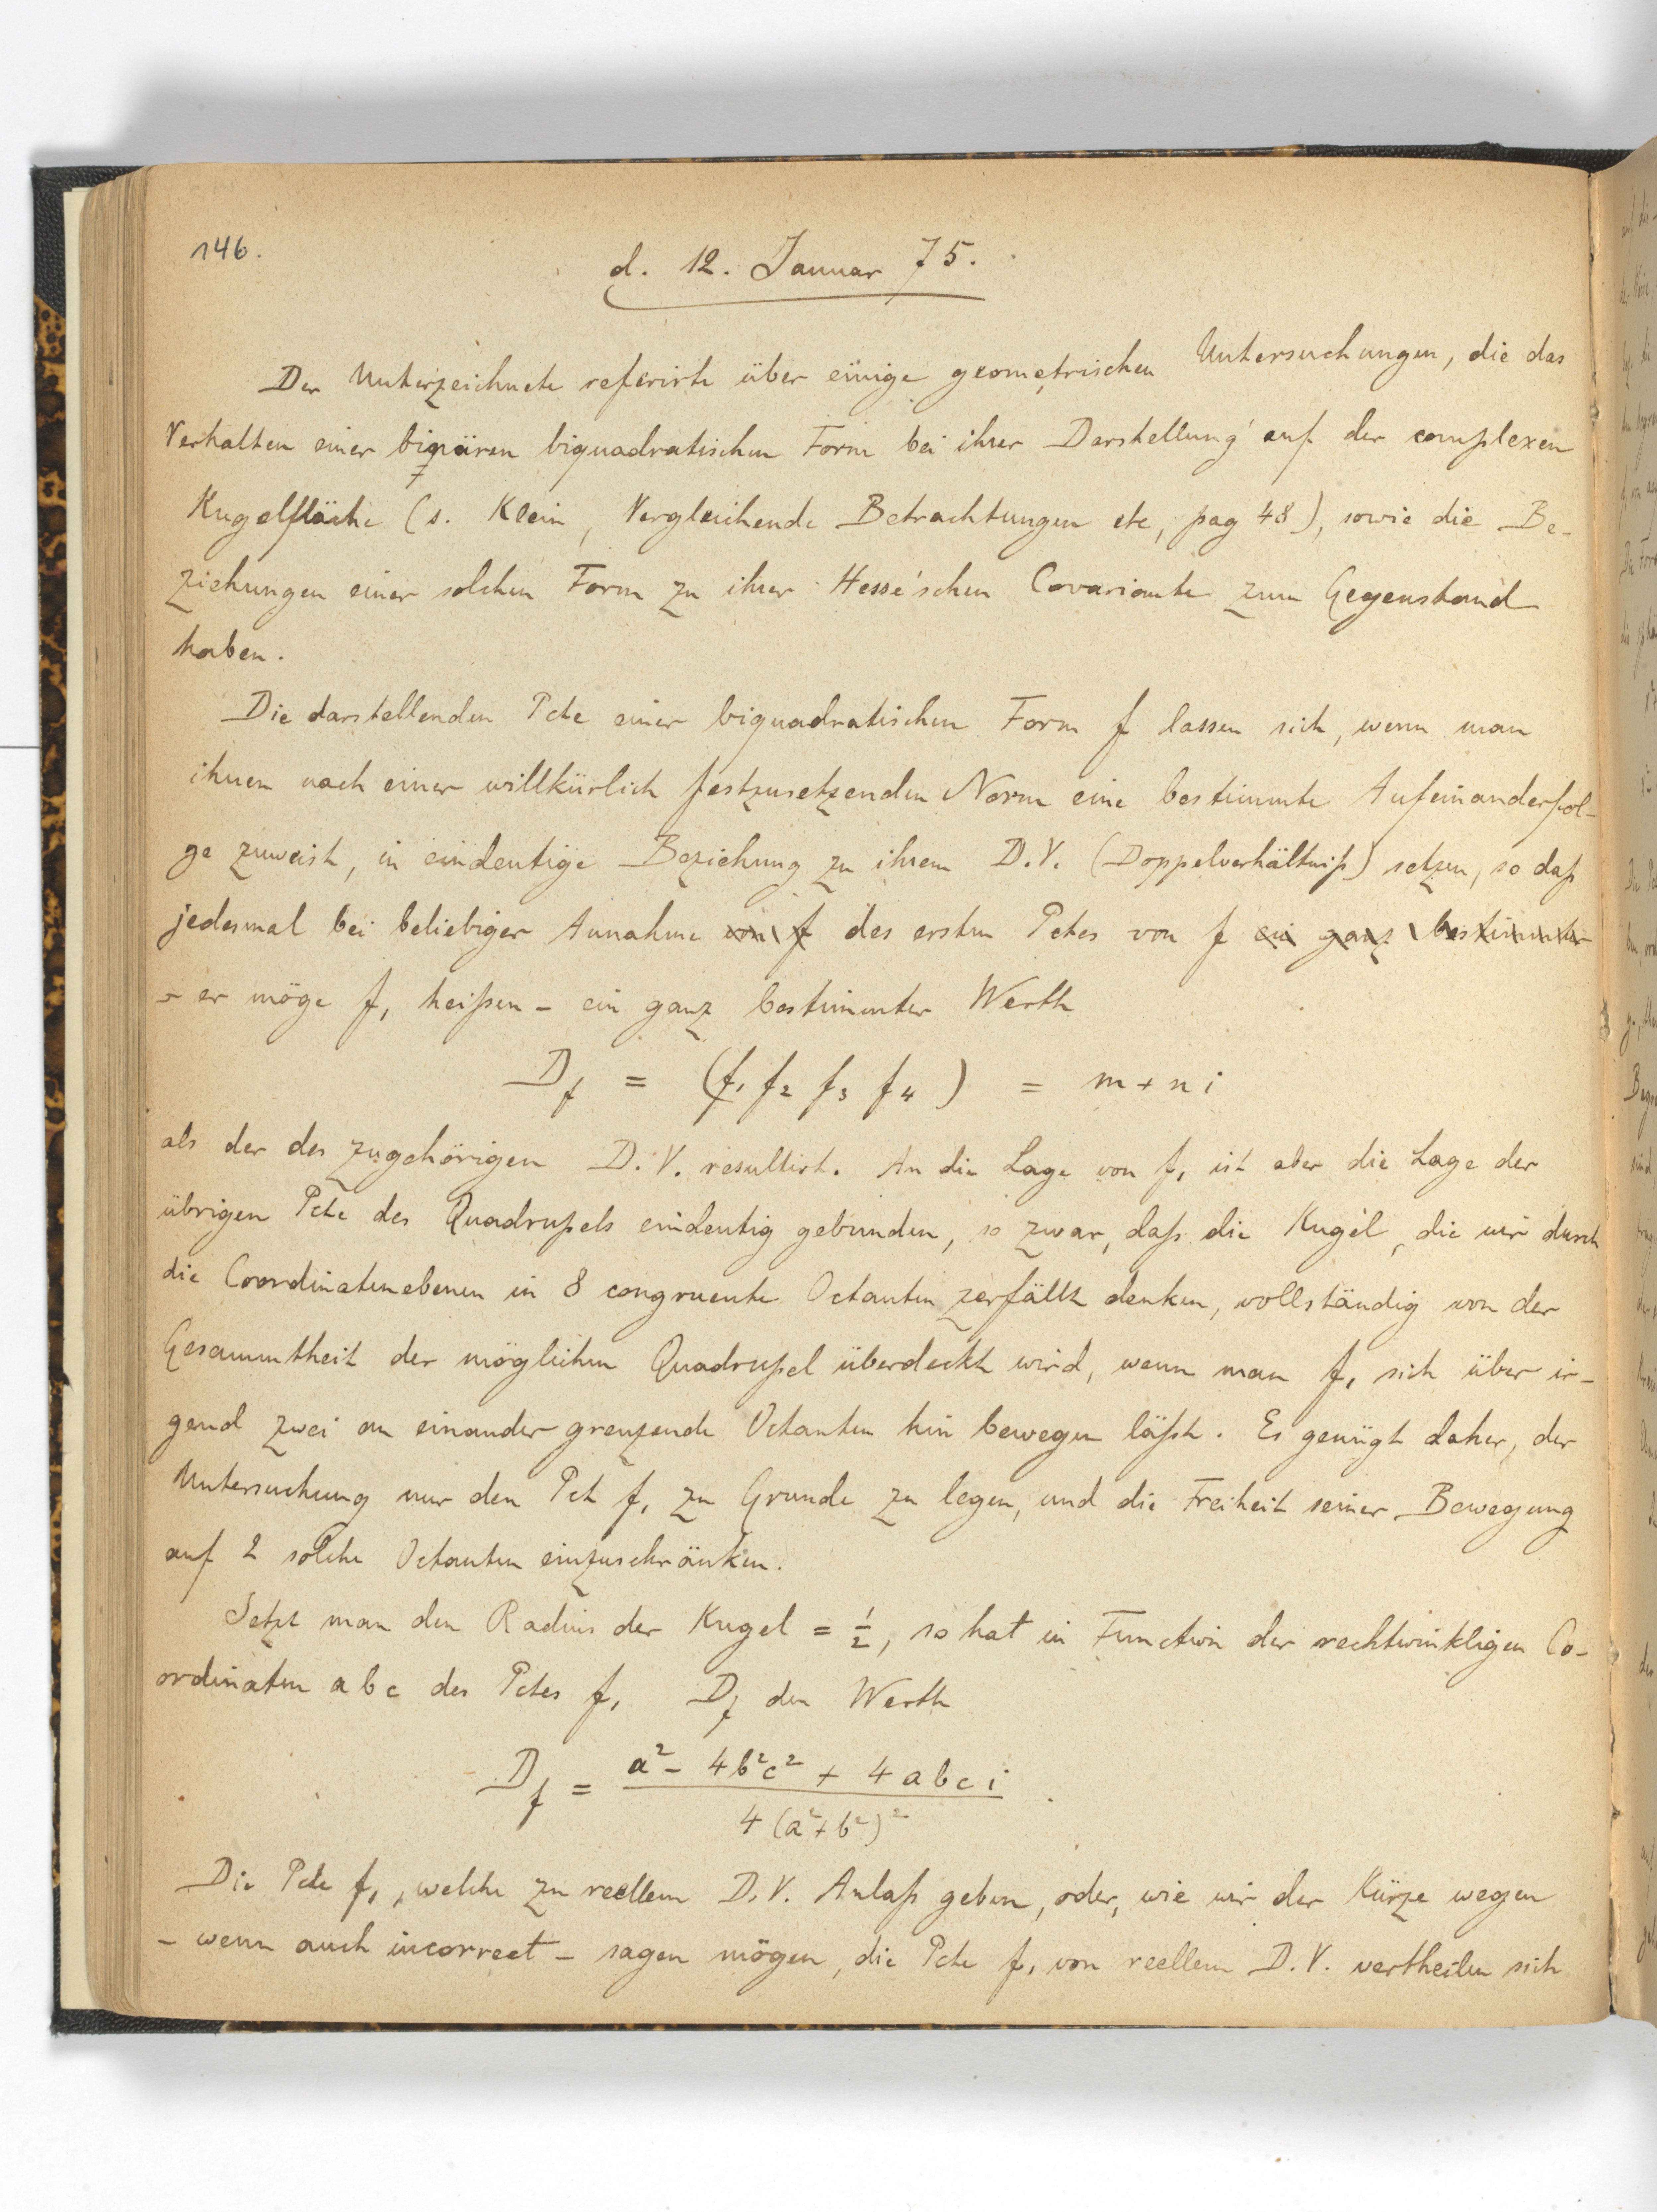 146.
d. 12. Januar 75.
Der Unterzeichnete referirte über einige geometrischen Untersuchungen, die das
Verhalten einer binären biquadratischen Form bei ihrer Darstellung auf der complexen
Kugelfläche (s. Klein, Vergleichende Betrachtungen etc, pag 48), sowie die Be-
ziehungen einer solchen Form zu ihrer Hesse'schen Covariante zum Gegenstand
haben.
Die darstellenden Pcte einer biquadratischen Form f lassen sich, wenn man
ihnen nach einer willkürlich festzusetzenden Norm eine bestimmte Aufeinanderfol-
ge zuweist, in eindeutige Beziehung zu ihrem D.V. (Doppelverhältniß) setzen, so daß
jedesmal bei beliebiger Annahme von f des ersten Pctes von f ein ganz bestimmter
- er möge f₁ heißen - ein ganz bestimmter Werth
D_f = (f₁ f₂ f₃ f₄) = m + n i
als der des zugehörigen D.V. resultirt. An die Lage von f₁ ist aber die Lage der
übrigen Pcte des Quadrupels eindeutig gebunden, so zwar, daß die Kugel, die wir durch
die Coordinatenebenen in 8 congruente Octanten zerfällt denken, vollständig von der
Gesammtheit der möglichen Quadrupel überdeckt wird, wenn man f₁ sich über ir-
gend zwei an einander grenzende Octanten hin bewegen läßt. Es genügt daher, der
Untersuchung nur den Pct f₁ zu Grunde zu legen, und die Freiheit seiner Bewegung
auf 2 solche Octanten einzuschränken.
Setzt man den Radius der Kugel = 1/2, so hat in Function der rechtwinkligen Co-
ordinaten a b c des Pctes f₁ D_f den Werth
D_f = (a² - 4b²c² + 4abci) / (4(a²+b²)²).
Die Pcte f₁, welche zu reellem D.V. Anlaß geben, oder, wie wir der Kürze wegen
- wenn auch incorrect - sagen mögen, die Pcte f₁ von reellem D.V. vertheilen sich